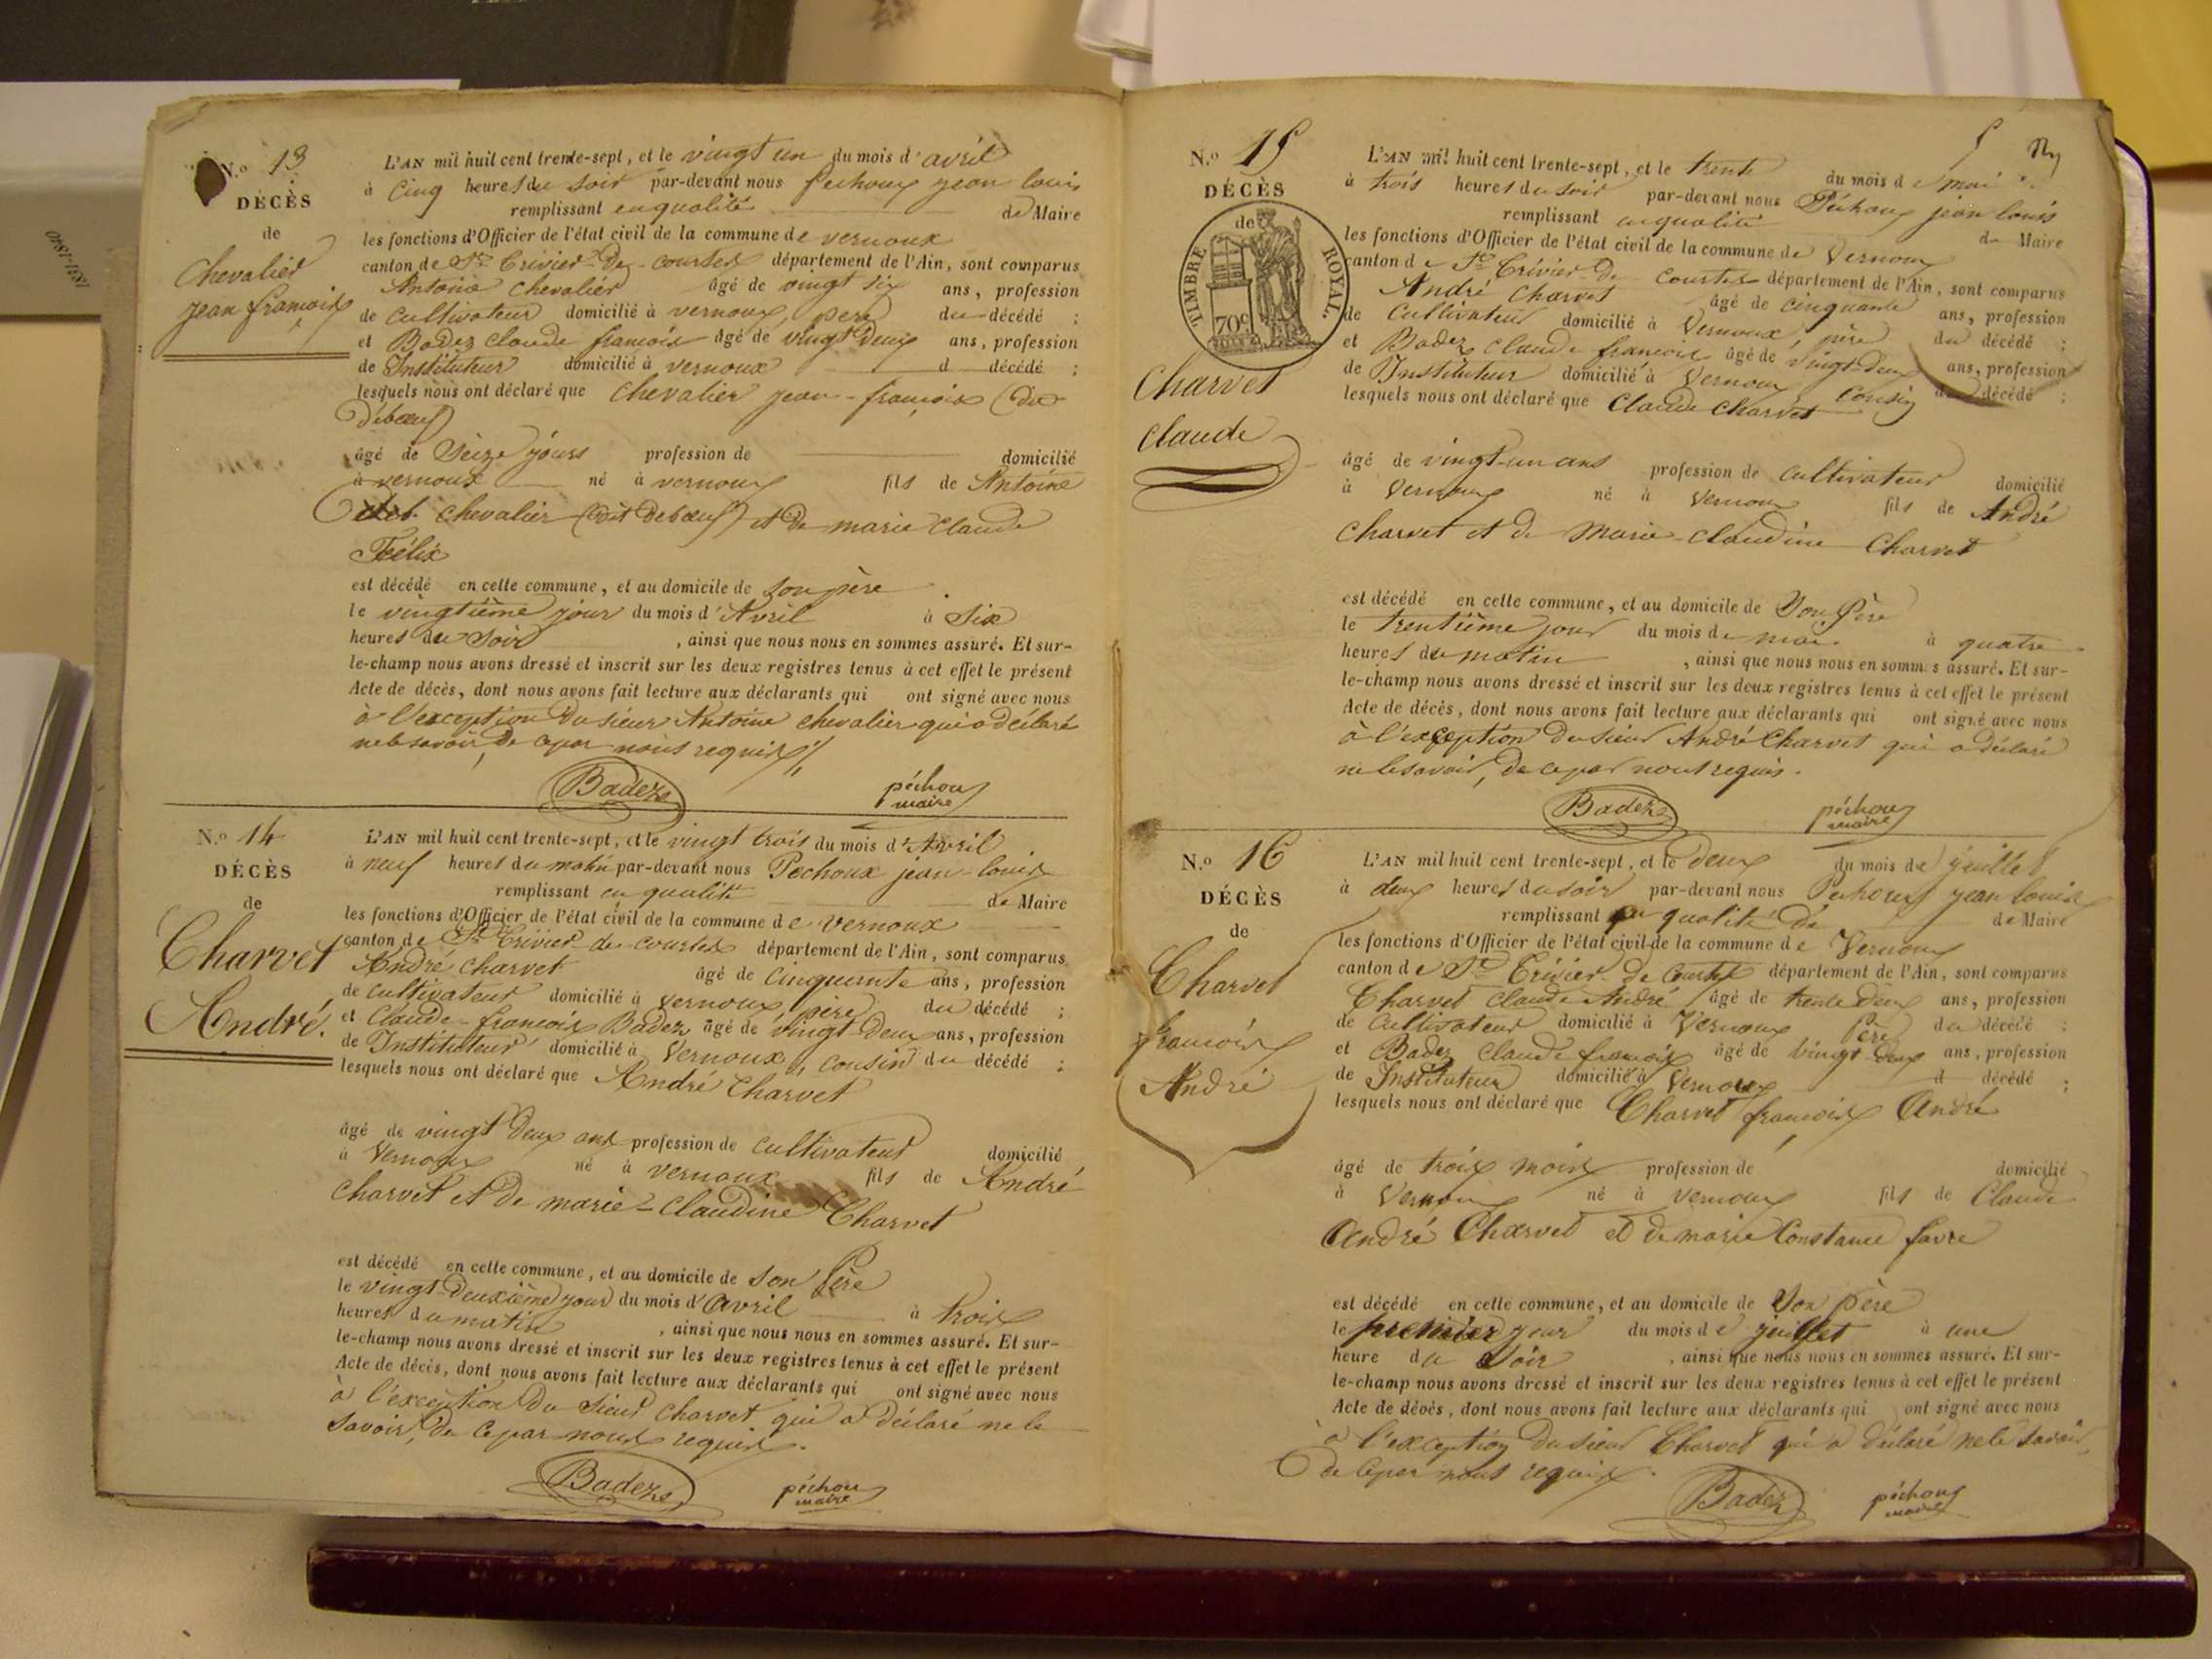 N.o 13
DÉCÈS
de
Chevalier
jean françois
L'AN mil huit cent trente-sept, et le vingt un du mois d'avril
à cinq heures du soir par-devant nous Pechoux jean louis
remplissant en qualité de Maire
les fonctions d'Officier de l'état civil de la commune de vernoux
canton de St Trivier-de-courtes département de l'Ain, sont comparus
Antoine Chevalier âgé de vingt six ans, profession
de cultivateur domicilié à vernoux, pere du décédé ;
et Badez claude françois âgé de vingt Deux ans, profession
de Instituteur domicilié à vernoux d décédé ;
lesquels nous ont déclaré que Chevalier jean-françois (dit
Debœuf)
âgé de Seize jours profession de domicilié
à vernoux né à vernoux fils de Antoine
Chevalier (dit debœuf) et de marie Claude
Félix
est décédé en cette commune, et au domicile de son père
le vingtième jour du mois d'Avril à Six
heures du Soir, ainsi que nous nous en sommes assuré. Et sur-
le-champ nous avons dressé et inscrit sur les deux registres tenus à cet effet le présent
Acte de décès, dont nous avons fait lecture aux déclarants qui ont signé avec nous
à l'exception du sieur Antoine chevalier qui a déclaré
ne le savoir, de ce par nous requis
Badez
péchoux
maire
N.o 14
DÉCÈS
de
Charvet
André.
L'AN mil huit cent trente-sept, et le vingt trois du mois d'Avril
à neuf heures du matin par-devant nous Pechoux jean-louis
remplissant en qualité de Maire
les fonctions d'Officier de l'état civil de la commune de vernoux
canton de St Trivier-de-courtes département de l'Ain, sont comparus
André Charvet âgé de cinquante ans, profession
de cultivateur domicilié à vernoux père du décédé ;
et Claude-françois Badez âgé de vingt-Deux ans, profession
de Instituteur domicilié à Vernoux, cousin du décédé ;
lesquels nous ont déclaré que André Charvet
âgé de vingt Deux ans profession de cultivateur domicilié
à Vernoux né à vernoux fils de André
Charvet et de marie-Claudine Charvet
est décédé en cette commune, et au domicile de son Père
le vingt-Deuxième jour du mois d'Avril à trois
heures du matin, ainsi que nous nous en sommes assuré. Et sur-
le-champ nous avons dressé et inscrit sur les deux registres tenus à cet effet le présent
Acte de décès, dont nous avons fait lecture aux déclarants qui ont signé avec nous
à l'exception du sieur Charvet qui a déclaré ne le
savoir, de ce par nous requis.
Badez
péchoux
maire
N.o 15
DÉCÈS
de
TIMBRE ROYAL.
70c
Charvet
claude
L'AN mil huit cent trente-sept, et le trente du mois de mai
à trois heures du soir par-devant nous Péchoux jean louis
remplissant en qualité de Maire
les fonctions d'Officier de l'état civil de la commune de Vernoux
canton de St Trivier-de-Courtes département de l'Ain, sont comparus
André Charvet âgé de cinquante ans, profession
de cultivateur domicilié à Vernoux, père du décédé ;
et Badez Claude françois âgé de vingt-deux ans, profession
de Instituteur domicilié à Vernoux cousin du décédé ;
lesquels nous ont déclaré que Claude Charvet
âgé de vingt-un ans profession de cultivateur domicilié
à Vernoux né à Vernoux fils de André
Charvet et de Marie-Claudine Charvet
est décédé en cette commune, et au domicile de Son Père
le trentième jour du mois de mai à quatre
heures du matin, ainsi que nous nous en sommes assuré. Et sur-
le-champ nous avons dressé et inscrit sur les deux registres tenus à cet effet le présent
Acte de décès, dont nous avons fait lecture aux déclarants qui ont signé avec nous
à l'exception du sieur André Charvet qui a déclaré
ne le savoir, de ce par nous requis.
Badez
péchoux
maire
N.o 16
DÉCÈS
de
Charvet
françois
André
L'AN mil huit cent trente-sept, et le deux du mois de juillet
à deux heures du soir par-devant nous Pechoux jean louis
remplissant en qualité de de Maire
les fonctions d'Officier de l'état civil de la commune de Vernoux
canton de St Trivier-de-Courtes département de l'Ain, sont comparus
Charvet claude André âgé de trente deux ans, profession
de cultivateur domicilié à Vernoux Père du décédé ;
et Badez Claude françois âgé de vingt-deux ans, profession
de Instituteur domicilié à Vernoux d décédé ;
lesquels nous ont déclaré que Charvet françois André
âgé de trois mois profession de domicilié
à Vernoux né à vernoux fils de Claude
André Charvet et de marie Constance favre
est décédé en cette commune, et au domicile de Son père
le premier jour du mois de juillet à une
heure du Soir, ainsi que nous nous en sommes assuré. Et sur-
le-champ nous avons dressé et inscrit sur les deux registres tenus à cet effet le présent
Acte de décès, dont nous avons fait lecture aux déclarants qui ont signé avec nous
à l'exception du sieur Charvet qui a déclaré ne le savoir,
de ce par nous requis.
Badez
péchoux
maire
1831-1840